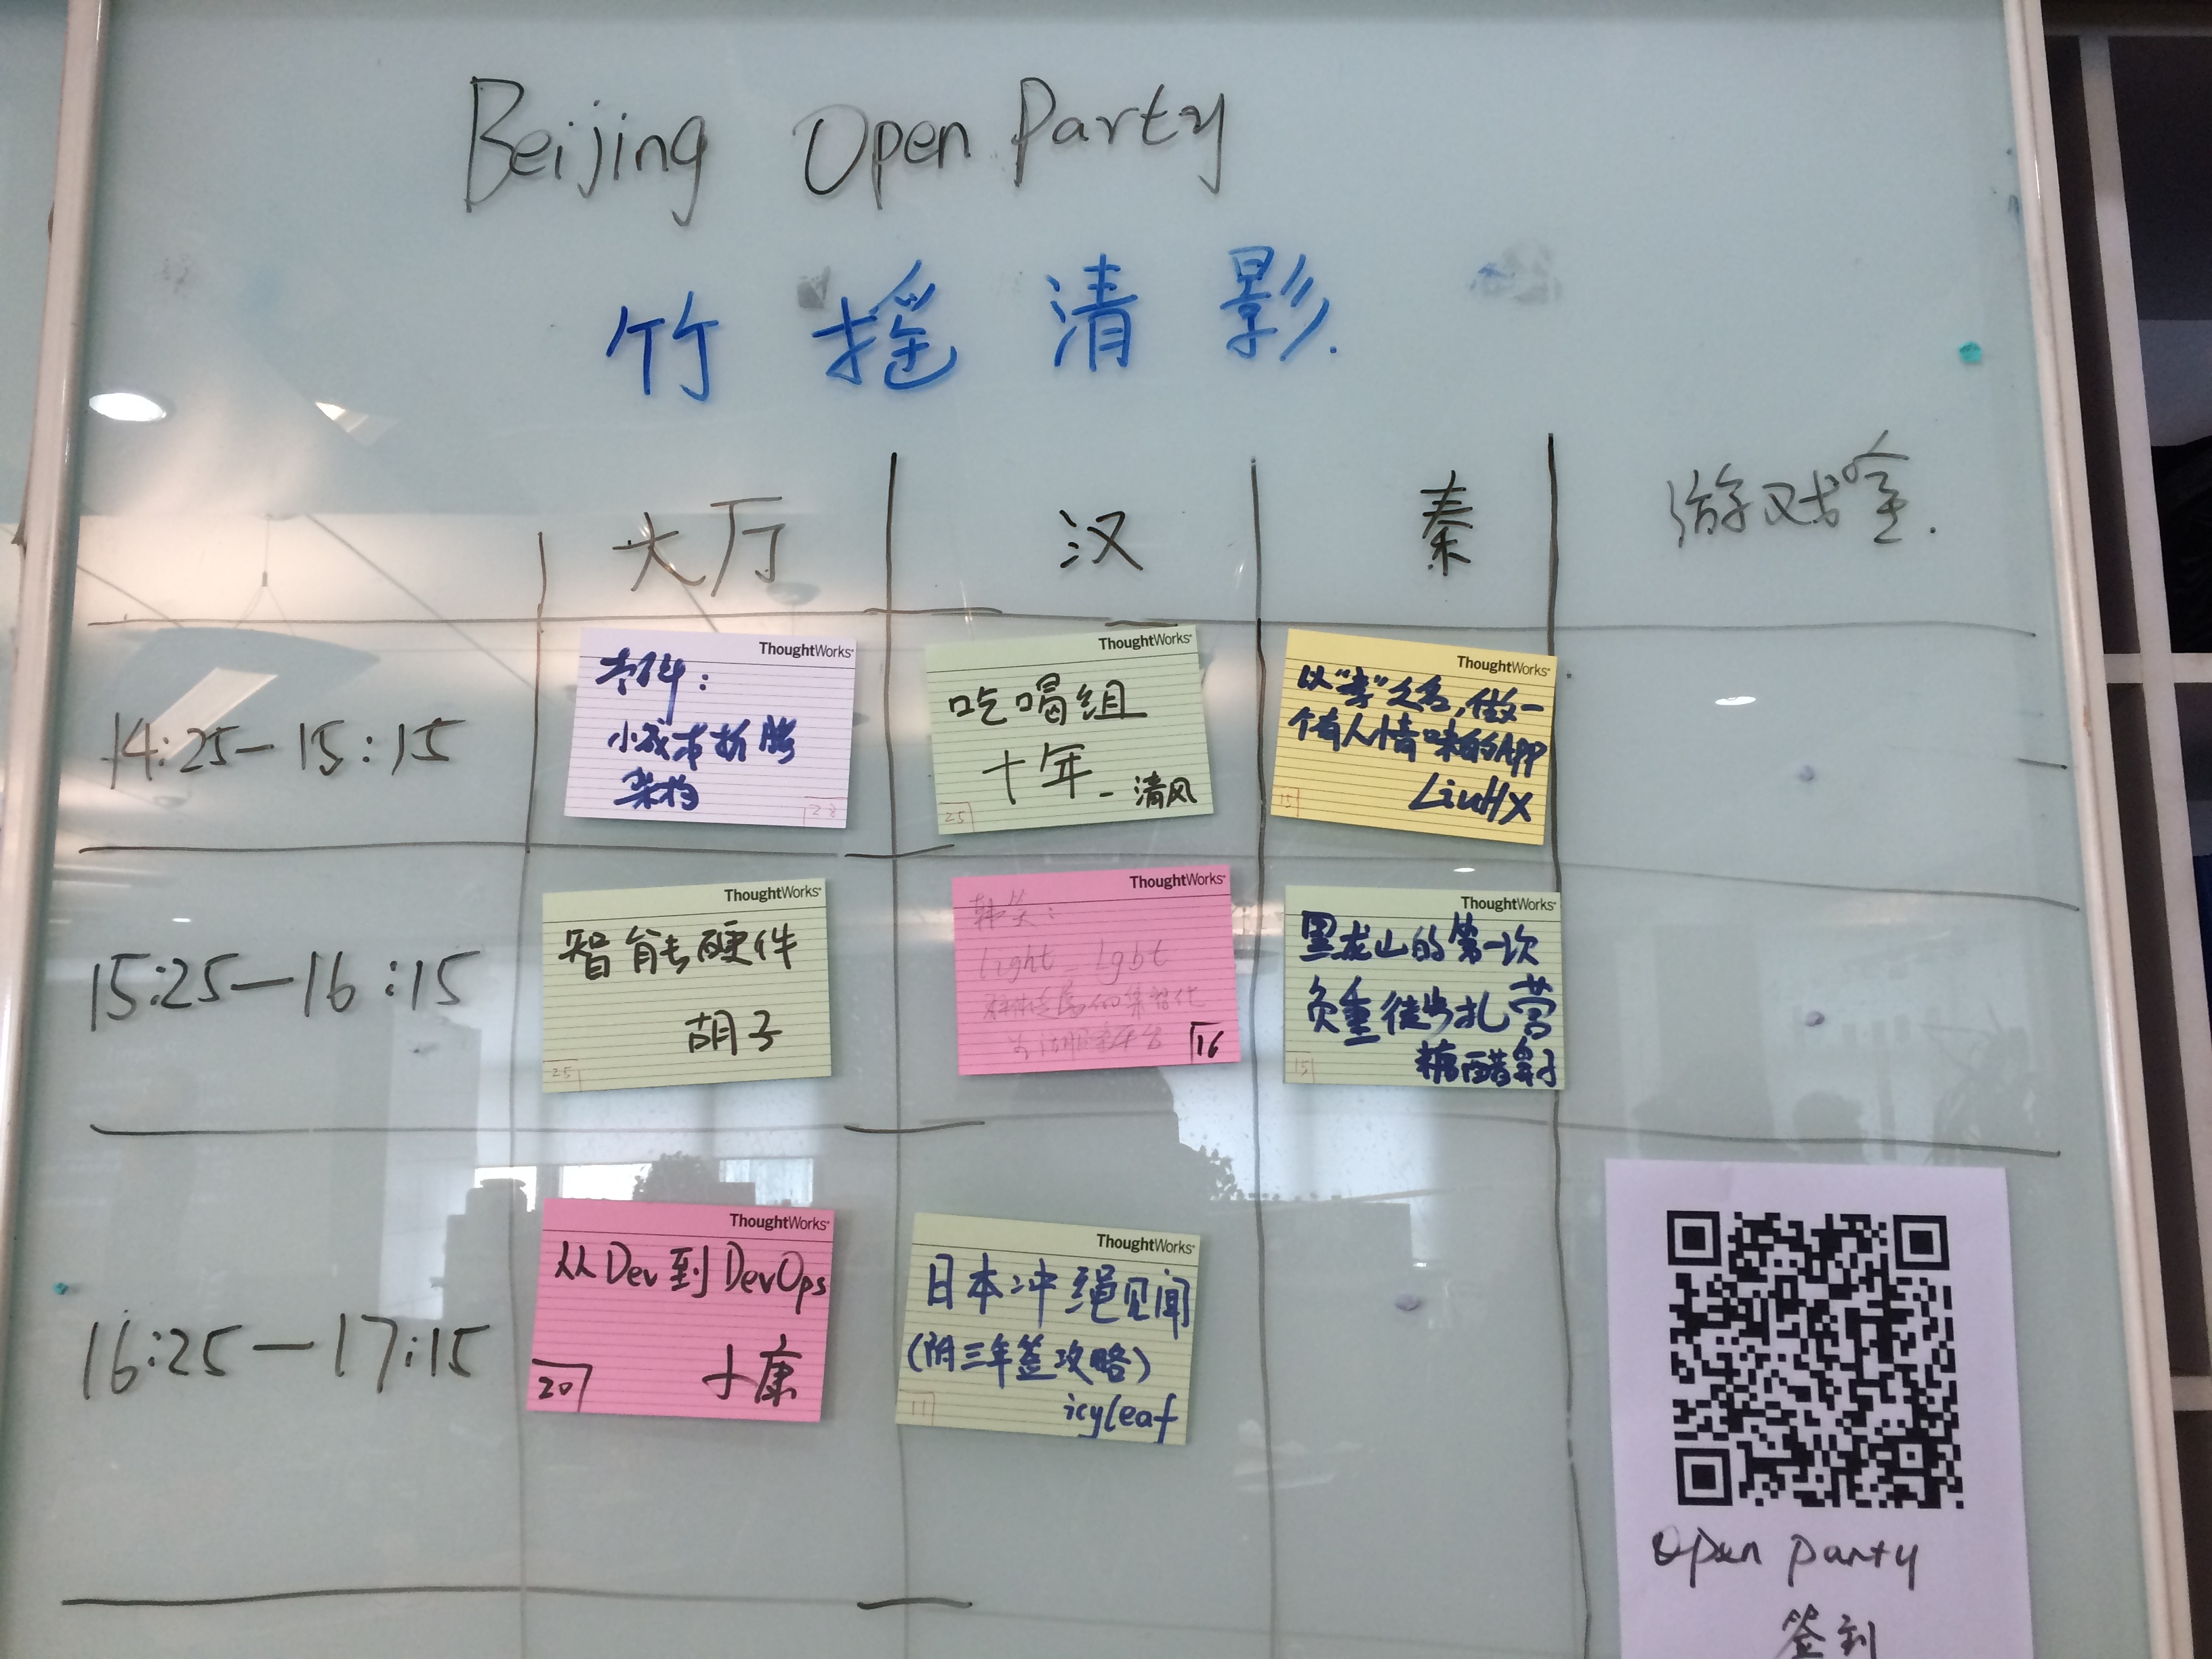 Beijing Open Party
竹摇清影.
大厅 汉 秦 游戏室.
14:25-15:15
ThoughtWorks
小成本折腾
25
ThoughtWorks
吃喝组
十年 - 清风
25
ThoughtWorks
以"李"之名,做一
个有人情味的APP
LiuHX
15
15:25-16:15
ThoughtWorks
智能硬件
胡子
25
ThoughtWorks
韩笑:
light_lgbt
16
ThoughtWorks
黑龙山的第一次
负重徒步扎营
糖醋
15
16:25-17:15
ThoughtWorks
从Dev到DevOps
小康
20
ThoughtWorks
日本冲绳见闻
(附三年签攻略)
icyleaf
11
Open Party
签到